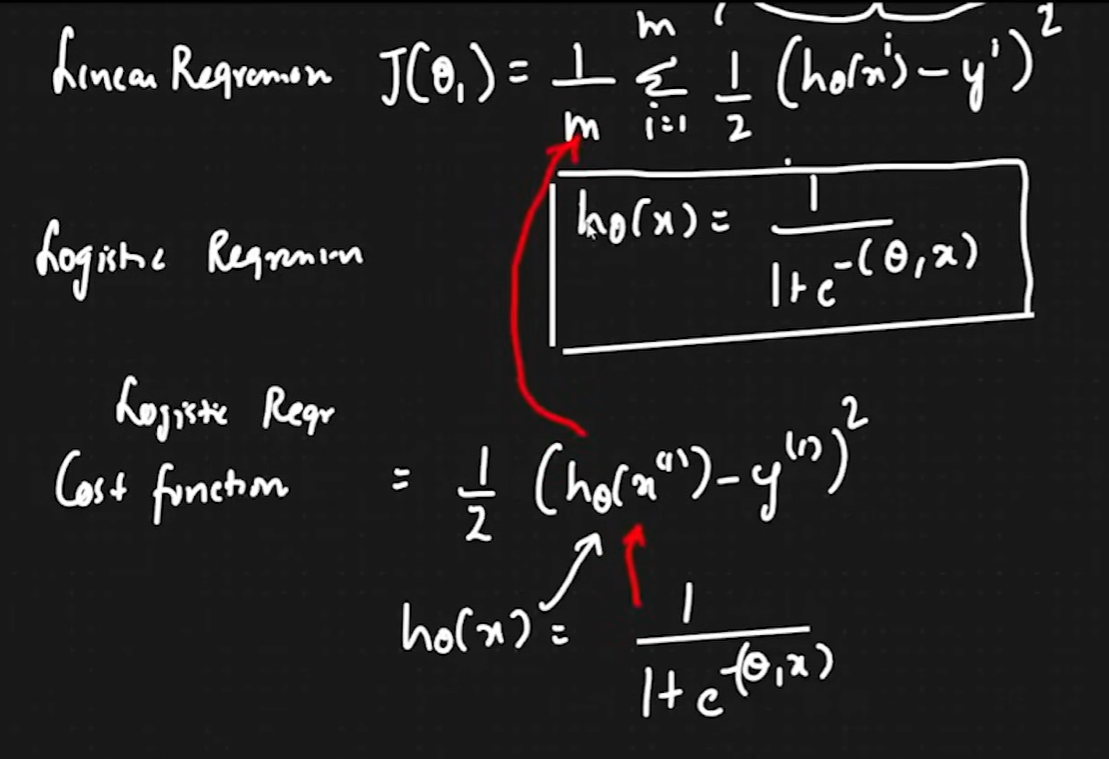 Linear Regression J(θ₁) = 1/m Σ_{i=1}^{m} 1/2 (hθ(xⁱ) - yⁱ)²
Logistic Regression
hθ(x) = 1/(1+e^{-(θ₁x)})
Logistic Regr
Cost function = 1/2 (hθ(x⁽ⁱ⁾) - y⁽ⁱ⁾)²
hθ(x) = 1/(1+e^{-(θ₁x)})